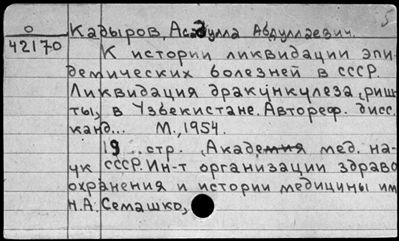 5
О Кадыров, Асадулла Абдуллаевич.
42170
К истории ликвидации эпи-
демических болезней в СССР.
Ликвидация дракункулеза "риш-
ты" в Узбекистане. Автореф. дисс.
канд... М., 1954.
19 ..стр. (Академия мед. на-
ук СССР. Ин-т организации здраво
охранения и истории медицины им
Н.А. Семашко)